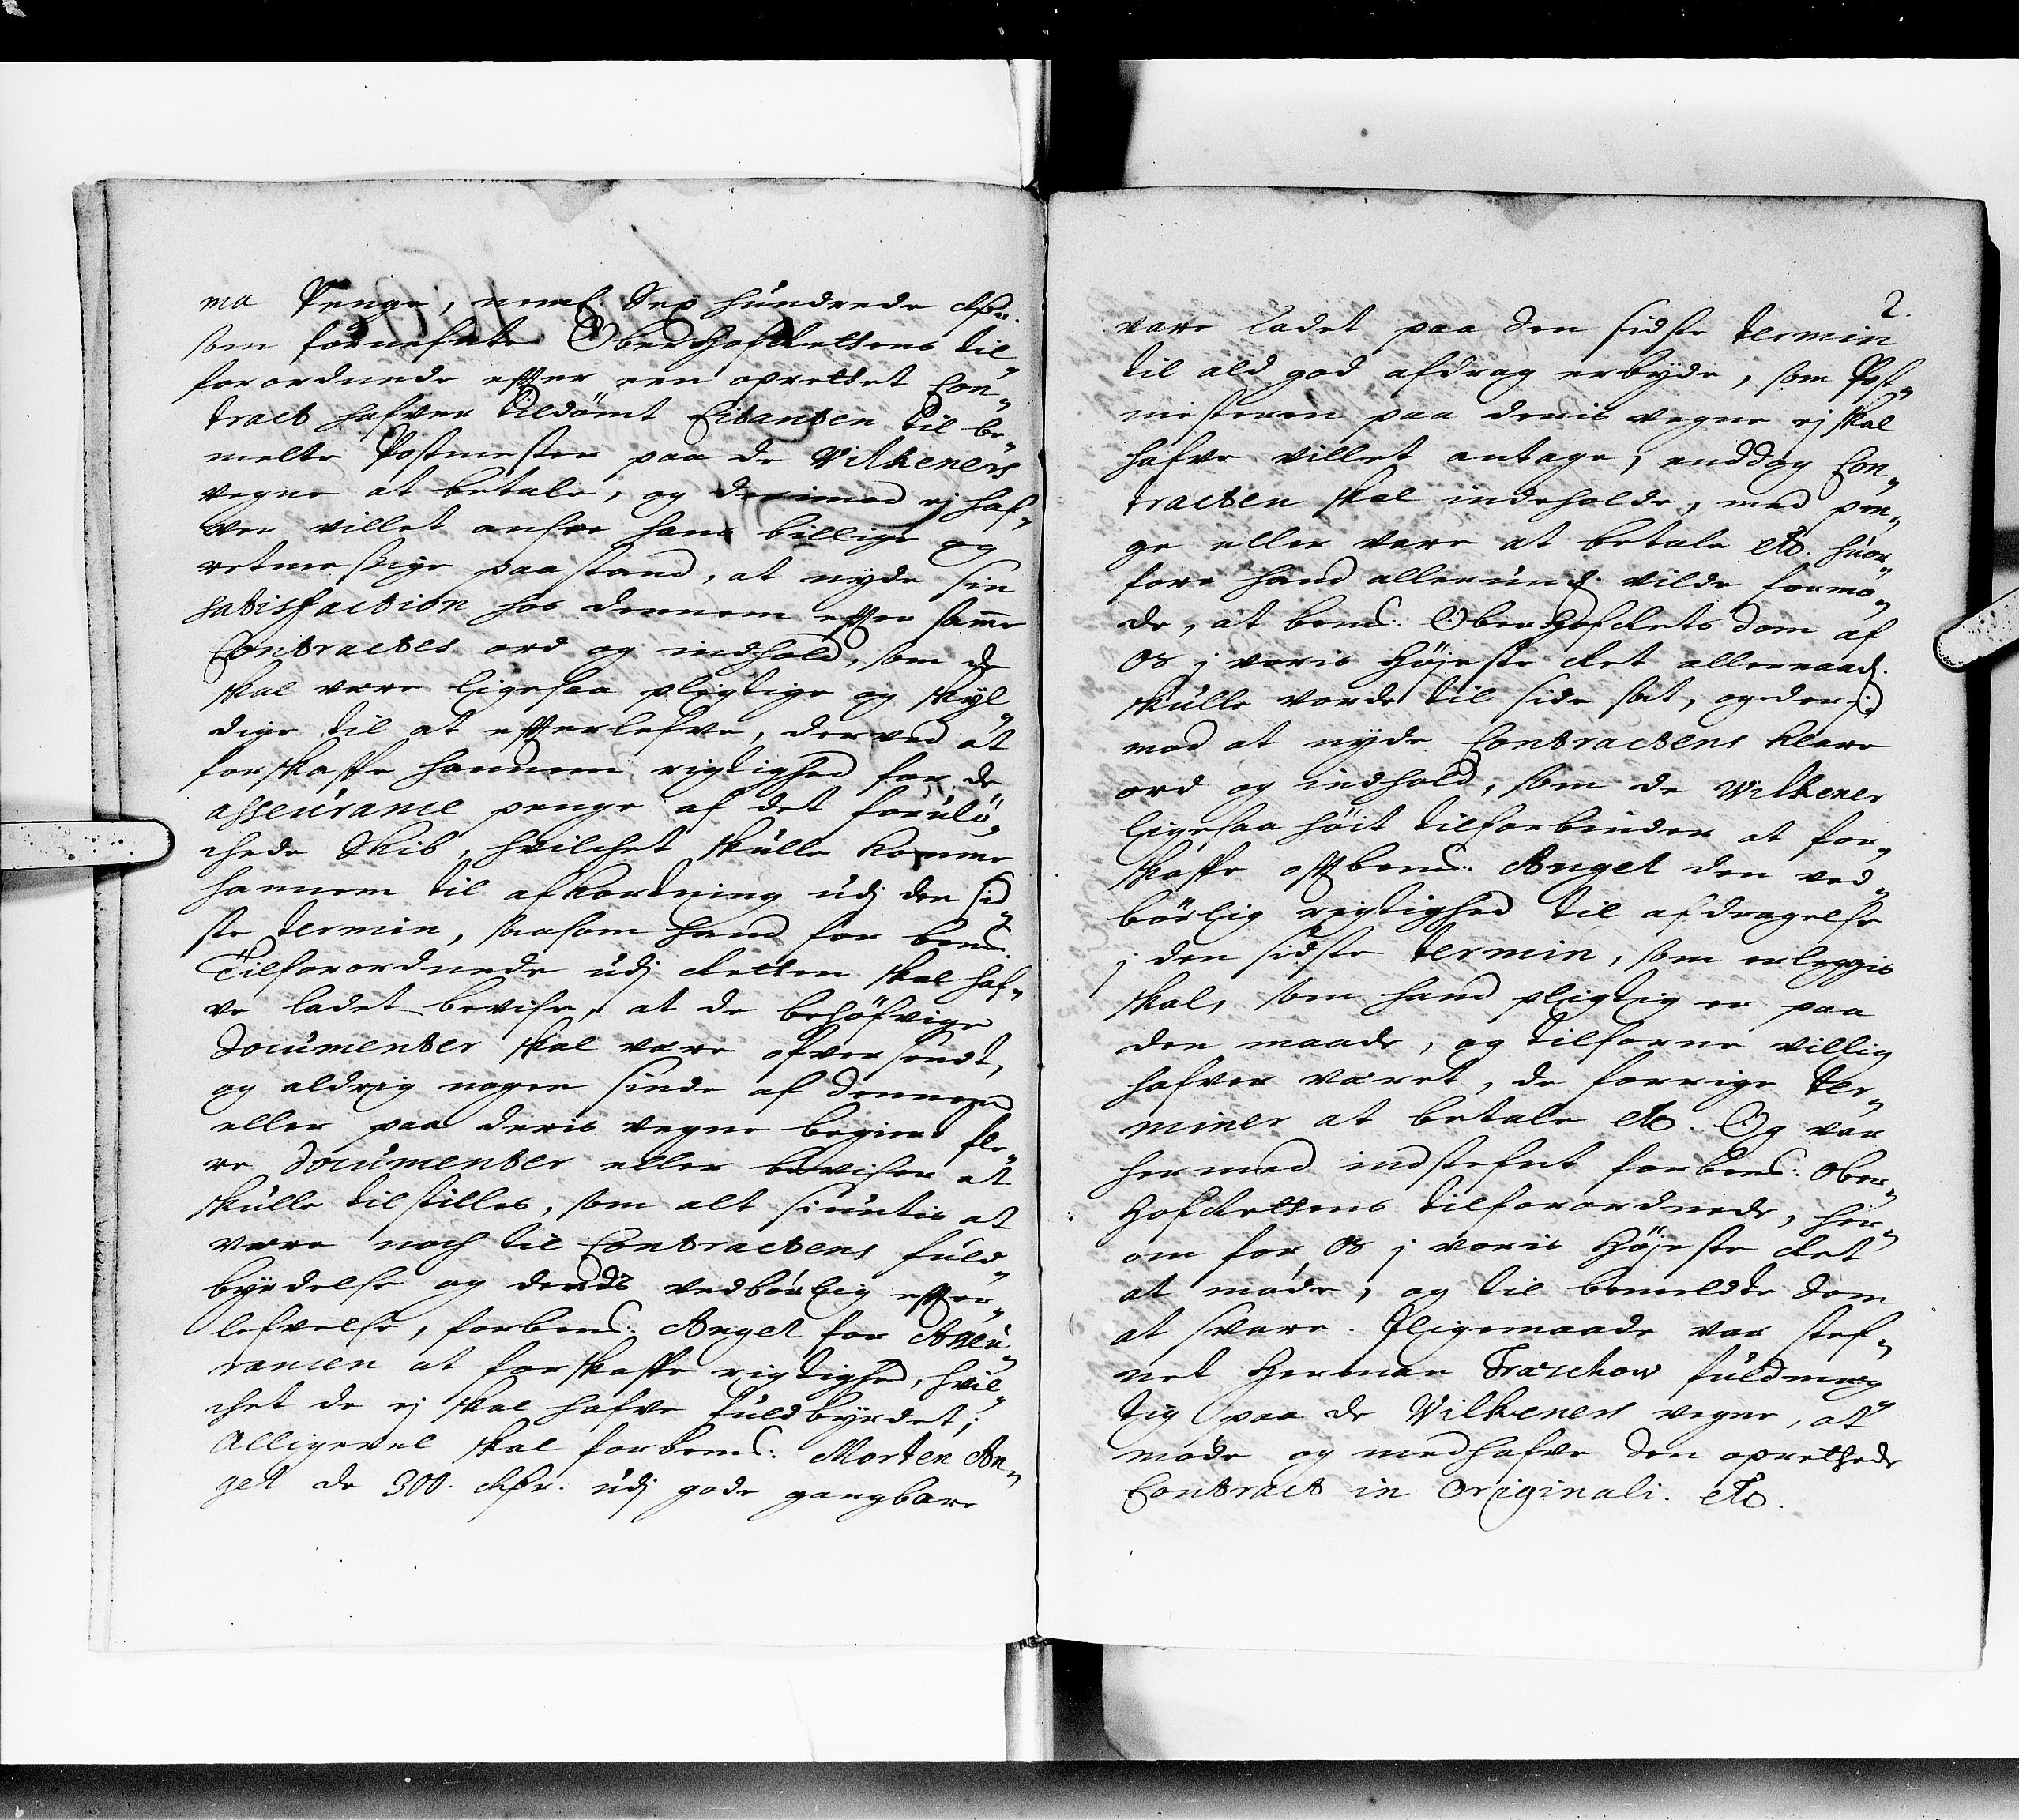 ma Penge, neml. Sex hundrede Rdr.
som fornefnte Oberhofrettens til
forordnede efter een oprettet Con„
tract hafver tildömt Citanten til be„
melte Postmester paa de Wilkeners
vegne at betale, og derimod ej haf„
ver villet ansee hans billige og
retmessige paastand, at nyde sin
satisfaction hos dennem efter samme
Contractes ord og indhold, som de
skal være ligesaa pligtige og skyl„
dige til at efterlefve, derved at
forskaffe hannem rigtighed for de
asseurance penge af det forulö„
chede Skib, hvilchet skulle komme
hannem til afkortning udj den sid„
ste termin, saasom hand for bem.
Tilforordnede udj Retten skal haf„
ve ladet bevise, at de behöfvige
Documenter skal være ofversendt,
og aldrig nogen sinde af dennem
eller paa deris vegne begiert fle„
re Documenter eller beviser at
skulle tilstilles, som alt siuntis at
være noch til Contractens fuld„
byrdelse og dends vedbörlig efter„
lefvelse, forbemt: Anget for Asseu„
rancen at forskaffe rigtighed, hvil„
chet de ej skal hafve fuldbyrdet;
Alligevel skal forbemt: Morten An„
get de 300. Rdr. udj gode gangbare
2.
vare ladet paa den sidste termin
til ald god afdrag erbyde, som Post„
mesteren paa deris vegne ej skal
hafve villet antage, enddog Con„
tracten skal indeholde, med pen„
ge eller vare at betale etc. huor„
fore hand allerund. vilde formo„
de, at bemt: Oberhofrets dom af
Os j voris Höjeste Ret allernaad.
skulle vorde til side sat, og der„
mod at nyde Contractens klare
ord og indhold, som de Wilkener
ligesaa höit tilforbinder at for„
skaffe oftbemt: Anget den ved„
börlig rigtighed til afdragelse
j den sidste termin, som erleggis
skal, som hand pligtig er paa
den maade, og tilforne villig
hafver været, de forrige ter„
miner at betale etc. Og var
hermed indstefnt forbemt: Ober„
Hofrettens tilforordnede, her„
om for Os j voris Höjeste Ret
at möde, og til bemeldte dom
at svare. Jligemaade var stef„
net Herman Træschow fuldmæg„
tig paa de Wilkeners vegne, at
möde og medhafve den oprettede
Contract in Originali. etc.